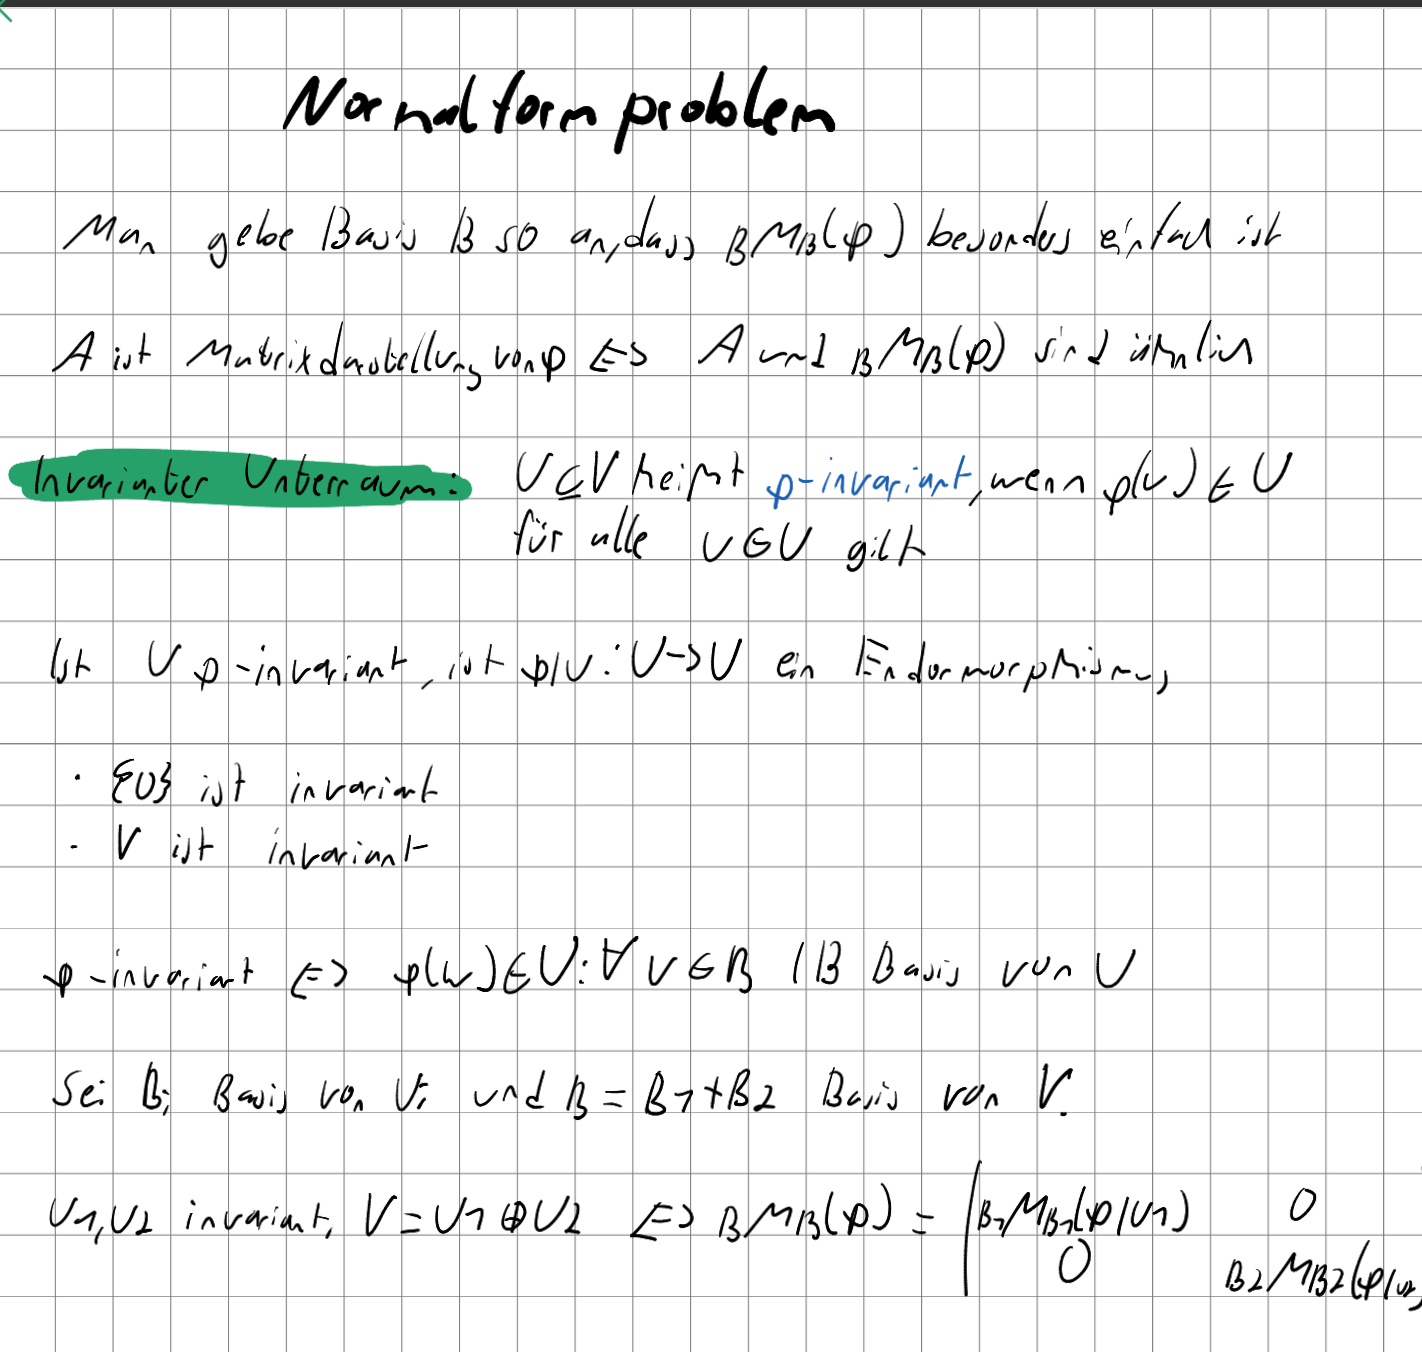 Normalformproblem
Man gebe Basis B so an, dass BMB(φ) besonders einfach ist
A ist Matrixdarstellung von φ <=> A und BMB(φ) sind ähnlich
Invarianter Unterraum: U⊆V heißt φ-invariant, wenn φ(v) ∈ U
für alle v∈U gilt
Ist U φ-invariant, ist φ|U: U->U ein Endormorphismus
· {0} ist invariant
· V ist invariant
φ-invariant <=> φ(v)∈U: ∀ v∈B | B Basis von U
Sei Bi Basis von Ui und B = B1+B2 Basis von V.
U1,U2 invariant, V=U1⊕U2 <=> BMB(φ) = (B1MB1(φ|U1) 0
0 B2MB2(φ|U2)